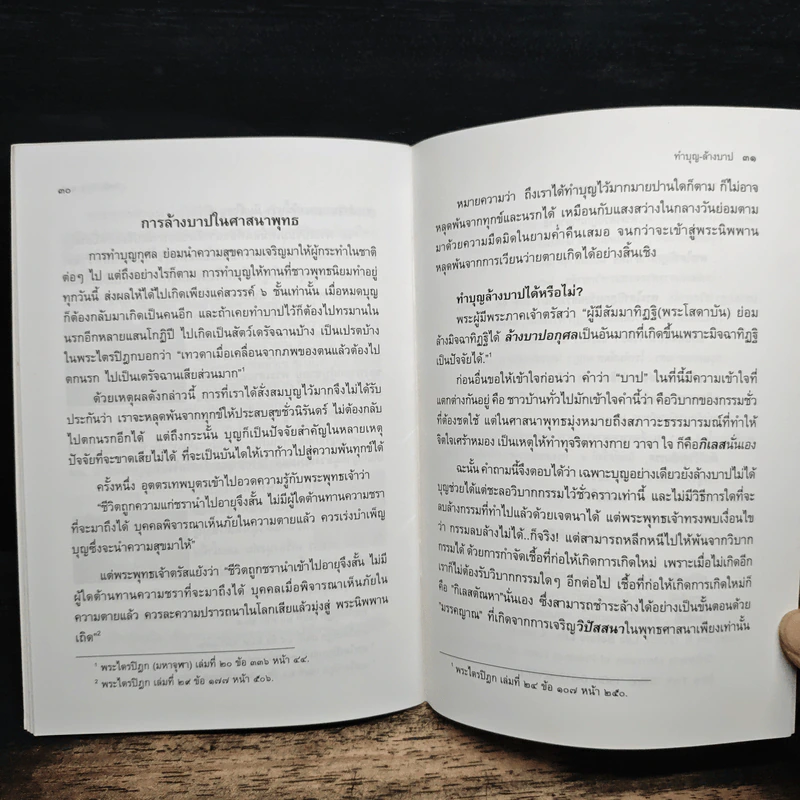 ๓๐
การล้างบาปในศาสนาพุทธ
การทำบุญกุศล ย่อมนำความสุขความเจริญมาให้ผู้กระทำในชาติ
ต่อๆ ไป แต่ถึงอย่างไรก็ตาม การทำบุญให้ทานที่ชาวพุทธนิยมทำอยู่
ทุกวันนี้ ส่งผลให้ได้ไปเกิดเพียงแค่สวรรค์ ๖ ชั้นเท่านั้น เมื่อหมดบุญ
ก็ต้องกลับมาเกิดเป็นคนอีก และถ้าเคยทำบาปไว้ก็ต้องไปทรมานใน
นรกอีกหลายแสนโกฏิปี ไปเกิดเป็นสัตว์เดรัจฉานบ้าง เป็นเปรตบ้าง
ในพระไตรปิฎกบอกว่า “เทวดาเมื่อเคลื่อนจากภพของตนแล้วต้องไป
ตกนรก ไปเป็นเดรัจฉานเสียส่วนมาก”¹
ด้วยเหตุผลดังกล่าวนี้ การที่เราได้สั่งสมบุญไว้มากจึงไม่ได้รับ
ประกันว่า เราจะหลุดพ้นจากทุกข์ให้ประสบสุขชั่วนิรันดร์ ไม่ต้องกลับ
ไปตกนรกอีกได้ แต่ถึงกระนั้น บุญก็เป็นปัจจัยสำคัญในหลายเหตุ
ปัจจัยที่จะขาดเสียไม่ได้ ที่จะเป็นบันไดให้เราก้าวไปสู่ความพ้นทุกข์ได้
ครั้งหนึ่ง อุตตรเทพบุตรเข้าไปอวดความรู้กับพระพุทธเจ้าว่า
“ชีวิตถูกความแก่ชรานำไปอายุจึงสั้น ไม่มีผู้ใดต้านทานความชรา
ที่จะมาถึงได้ บุคคลพิจารณาเห็นภัยในความตายแล้ว ควรเร่งบำเพ็ญ
บุญซึ่งจะนำความสุขมาให้”
แต่พระพุทธเจ้าตรัสแย้งว่า “ชีวิตถูกชรานำเข้าไปอายุจึงสั้น ไม่มี
ผู้ใดต้านทานความชราที่จะมาถึงได้ บุคคลเมื่อพิจารณาเห็นภัยใน
ความตายแล้ว ควรละความปรารถนาในโลกเสียแล้วมุ่งสู่ พระนิพพาน
เถิด”²
¹ พระไตรปิฎก (มหาจุฬา) เล่มที่ ๒๐ ข้อ ๓๓๖ หน้า ๔๔.
² พระไตรปิฎก เล่มที่ ๒๙ ข้อ ๑๗๗ หน้า ๕๐๖.
ทำบุญ-ล้างบาป ๓๑
หมายความว่า ถึงเราได้ทำบุญไว้มากมายปานใดก็ตาม ก็ไม่อาจ
หลุดพ้นจากทุกข์และนรกได้ เหมือนกับแสงสว่างในกลางวันย่อมตาม
มาด้วยความมืดมิดในยามค่ำคืนเสมอ จนกว่าจะเข้าสู่พระนิพพาน
หลุดพ้นจากการเวียนว่ายตายเกิดได้อย่างสิ้นเชิง
ทำบุญล้างบาปได้หรือไม่?
พระผู้มีพระภาคเจ้าตรัสว่า “ผู้มีสัมมาทิฏฐิ(พระโสดาบัน) ย่อม
ล้างมิจฉาทิฏฐิได้ ล้างบาปอกุศลเป็นอันมากที่เกิดขึ้นเพราะมิจฉาทิฏฐิ
เป็นปัจจัยได้.”¹
ก่อนอื่นขอให้เข้าใจก่อนว่า คำว่า “บาป” ในที่นี้มีความเข้าใจที่
แตกต่างกันอยู่ คือ ชาวบ้านทั่วไปมักเข้าใจคำนี้ว่า คือวิบากของกรรมชั่ว
ที่ต้องชดใช้ แต่ในศาสนาพุทธมุ่งหมายถึงสภาวะธรรมารมณ์ที่ทำให้
จิตใจเศร้าหมอง เป็นเหตุให้ทำทุจริตทางกาย วาจา ใจ ก็คือกิเลสนั่นเอง
ฉะนั้น คำถามนี้จึงตอบได้ว่า เฉพาะบุญอย่างเดียวยังล้างบาปไม่ได้
บุญช่วยได้แค่ชะลอวิบากกรรมไว้ชั่วคราวเท่านี้ และไม่มีวิธีการใดที่จะ
ลบล้างกรรมที่ทำไปแล้วด้วยเจตนาได้ แต่พระพุทธเจ้าทรงพบเงื่อนไข
ว่า กรรมลบล้างไม่ได้..ก็จริง! แต่สามารถหลีกหนีไปให้พ้นจากวิบาก
กรรมได้ ด้วยการกำจัดเชื้อที่ก่อให้เกิดการเกิดใหม่ เพราะเมื่อไม่เกิดอีก
เราก็ไม่ต้องรับวิบากกรรมใดๆ อีกต่อไป เชื้อที่ก่อให้เกิดการเกิดใหม่ก็
คือ “กิเลสตัณหา”นั่นเอง ซึ่งสามารถชำระล้างได้อย่างเป็นขั้นตอนด้วย
“มรรคญาณ” ที่เกิดจากการเจริญวิปัสสนาในพุทธศาสนาเพียงเท่านั้น
¹ พระไตรปิฎก เล่มที่ ๒๔ ข้อ ๑๐๗ หน้า ๒๕๐.